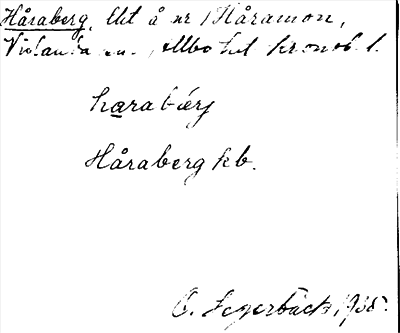 Håraberg, Ut å nr 1 Håramon,
Allbo hd. Kronob. l.
harabärj
Håraberg kb.
O. Segerbäck 1935.